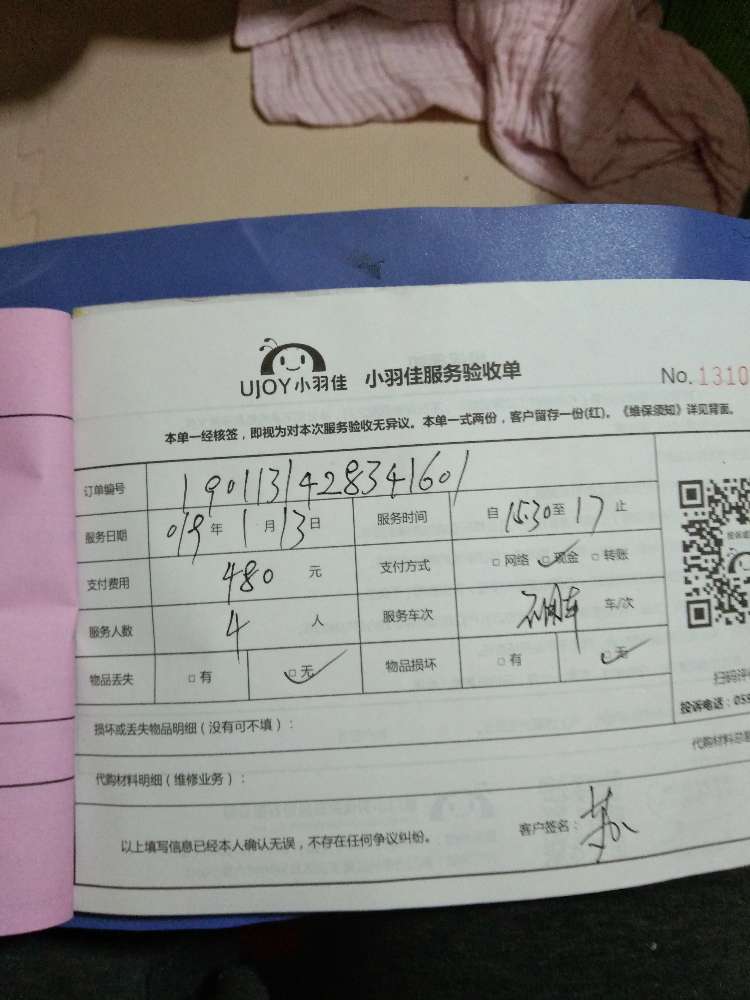 UJOY小羽佳 小羽佳服务验收单 No.1310
本单一经核签，即视为对本次服务验收无异议。本单一式两份，客户留存一份(红)。《维保须知》详见背面。
订单编号 1901131428341601
服务日期 019年1月13日 服务时间 自15:30至17止
支付费用 480元 支付方式 □网络 □现金 □转账
服务人数 4人 服务车次 车/次
物品丢失 □有 □无 物品损坏 □有 □无
扫码评
投诉电话：055
损坏或丢失物品明细（没有可不填）：
代购材料总
代购材料明细（维修业务）：
以上填写信息已经本人确认无误，不存在任何争议纠纷。 客户签名：